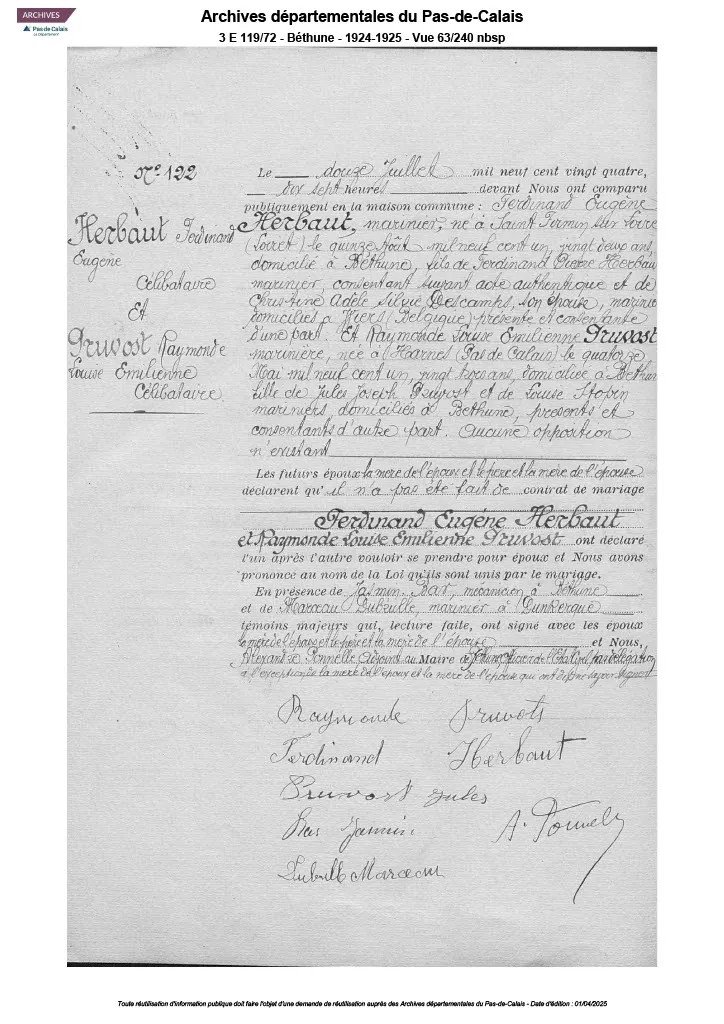 ARCHIVES
Pas-de-Calais
Le Département
Archives départementales du Pas-de-Calais
3 E 119/72 - Béthune - 1924-1925 - Vue 63/240 nbsp
N° 122
Herbaut Ferdinand
Eugène
Célibataire
Et
Pruvost Raymonde
Louise Emilienne
Célibataire
Le douze Juillet mil neuf cent vingt quatre,
dix sept heures devant Nous ont comparu
publiquement en la maison commune : Ferdinand Eugène
Herbaut, marinier, né à Saint Firmin sur Loire
(Loiret) le quinze Août mil neuf cent un, vingt deux ans,
domicilié à Béthune, fils de Ferdinand Pierre Herbau
marinier, consentant suivant acte authentique et de
Christine Adèle Silvie Descamps, son épouse, marinie
domiciliés à Wiers (Belgique) présente et consentante
d'une part. Et Raymonde Louise Emilienne Pruvost
marinière, née à Harnes (Pas de Calais) le quatorze
Mai mil neuf cent un, vingt trois ans, domiciliée à Béthun
fille de Jules Joseph Pruvost et de Louise
mariniers, domiciliés à Béthune, présents et
consentants d'autre part. Aucune opposition
n'existant
Les futurs époux la mère de l'époux et le père et la mère de l'épouse
déclarent qu' il n'a pas été fait de contrat de mariage
Ferdinand Eugène Herbaut
et Raymonde Louise Emilienne Pruvost ont déclaré
l'un après l'autre vouloir se prendre pour époux et Nous avons
prononcé au nom de la Loi qu'ils sont unis par le mariage.
En présence de Jasmin Bar, mécanicien à Béthune
et de Marceau Dubeuille, marinier à Dunkerque
témoins majeurs qui, lecture faite, ont signé avec les époux
la mère de l'époux et le père et la mère de l'épouse et Nous,
Alexandre Ponnelle Adjoint au Maire de Béthune, Officier de l'Etat Civil par délégation
à l'exception de la mère de l'époux et la mère de l'épouse qui ont déclaré ne savoir signer
Raymonde Pruvots
Ferdinand Herbaut
Pruvost Jules
Bar Jasmin
A. Ponnelle
Marceau
Toute réutilisation d'information publique doit faire l'objet d'une demande de réutilisation auprès des Archives départementales du Pas-de-Calais - Date d'édition : 01/04/2025